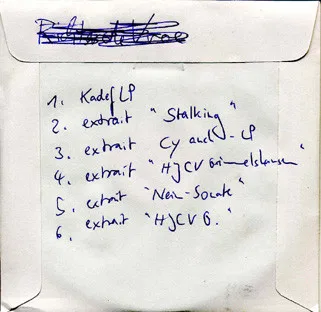 1. Kadef LP
2. extrait "Stalking"
3. extrait Cy and - LP
4. extrait "HJCV Grimmelshausen"
5. extrait "Nein-Sonate"
6. extrait "HJCV G."